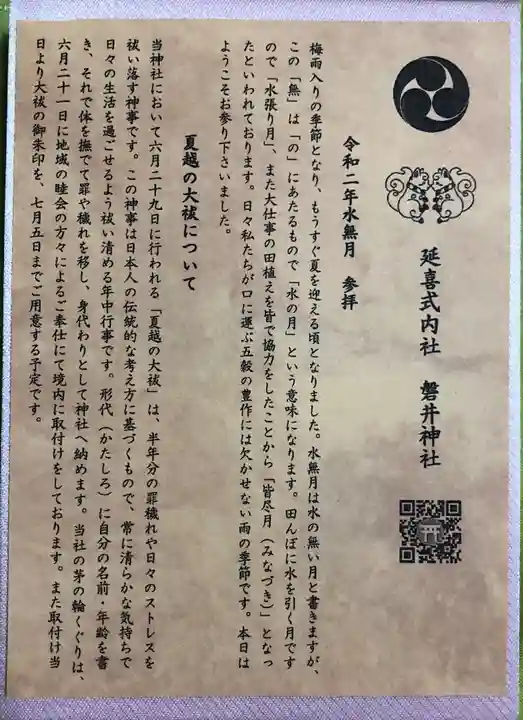 延喜式内社 磐井神社
令和二年水無月 参拝
梅雨入りの季節となり、もうすぐ夏を迎える頃となりました。水無月は水の無い月と書きますが、
この「無」は「の」にあたるもので「水の月」という意味になります。田んぼに水を引く月です
ので「水張り月」、また大仕事の田植えを皆で協力をしたことから「皆尽月（みなづき）」となっ
たといわれております。日々私たちが口に運ぶ五穀の豊作には欠かせない雨の季節です。本日は
ようこそお参り下さいました。
夏越の大祓について
当神社において六月二十九日に行われる「夏越の大祓」は、半年分の罪穢れや日々のストレスを
祓い落す神事です。この神事は日本人の伝統的な考え方に基づくもので、常に清らかな気持ちで
日々の生活を過ごせるよう祓い清める年中行事です。形代（かたしろ）に自分の名前・年齢を書
き、それで体を撫でて罪や穢れを移し、身代わりとして神社へ納めます。当社の茅の輪くぐりは、
六月二十一日に地域の睦会の方々によるご奉仕にて境内に取付けをしております。また取付け当
日より大祓の御朱印を、七月五日までご用意する予定です。